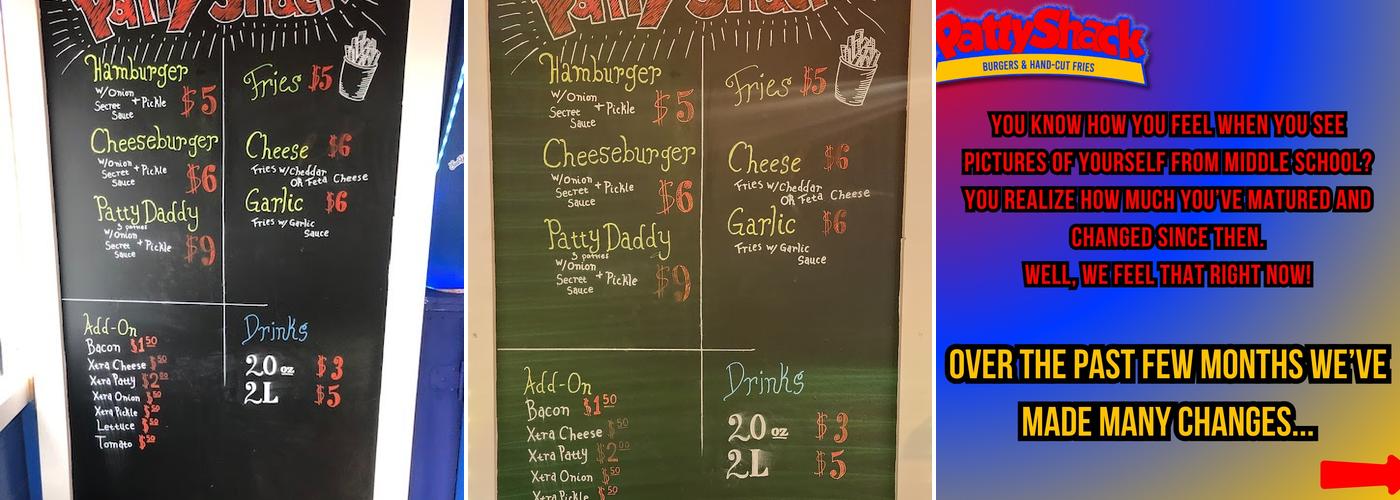 Patty Shack
Hamburger
w/Onion
Secret + Pickle
Sauce
$5
Cheeseburger
w/Onion
Secret + Pickle
Sauce
$6
Patty Daddy
3 patties
w/Onion
Secret + Pickle
Sauce
$9
Fries $5
Cheese $6
Fries w/Cheddar
OR Feta Cheese
Garlic $6
Fries w/ Garlic
Sauce
Add-On
Bacon $1.50
Xtra Cheese $.50
Xtra Patty $2.00
Xtra Onion $.50
Xtra Pickle $.50
Lettuce $.50
Tomato $.50
Drinks
20 oz $3
2L $5
Patty Shack
Hamburger
w/Onion
Secret + Pickle
Sauce
$5
Cheeseburger
w/Onion
Secret + Pickle
Sauce
$6
Patty Daddy
3 patties
w/Onion
Secret + Pickle
Sauce
$9
Fries $5
Cheese $6
Fries w/Cheddar
OR Feta Cheese
Garlic $6
Fries w/ Garlic
Sauce
Add-On
Bacon $1.50
Xtra Cheese $.50
Xtra Patty $2.00
Xtra Onion $.50
Xtra Pickle $.50
Drinks
20 oz $3
2L $5
PattyShack
BURGERS & HAND-CUT FRIES
YOU KNOW HOW YOU FEEL WHEN YOU SEE
PICTURES OF YOURSELF FROM MIDDLE SCHOOL?
YOU REALIZE HOW MUCH YOU'VE MATURED AND
CHANGED SINCE THEN.
WELL, WE FEEL THAT RIGHT NOW!
OVER THE PAST FEW MONTHS WE'VE
MADE MANY CHANGES...